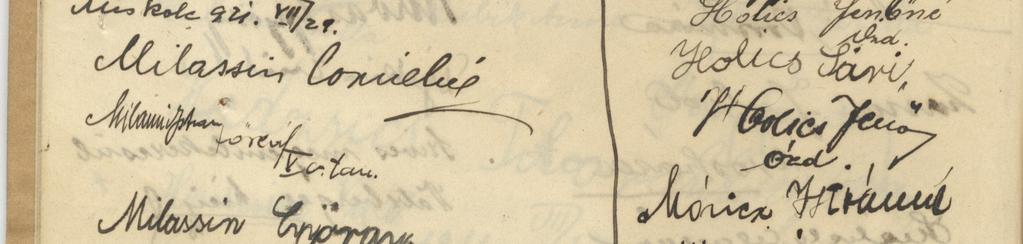 Miskolc 921. VII/29.
Milassin Cornélné
Milassin
V. o. tan.
Milassin György
Holics Jenőné
Ózd.
Holics Sári
Holics Jenő
Ózd.
Móricz Istvánné